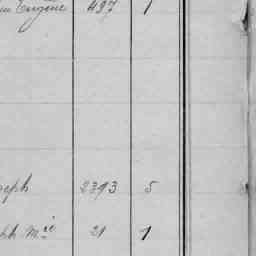 Eugène 497 1
seph 2393 5
ph Mie 21 1